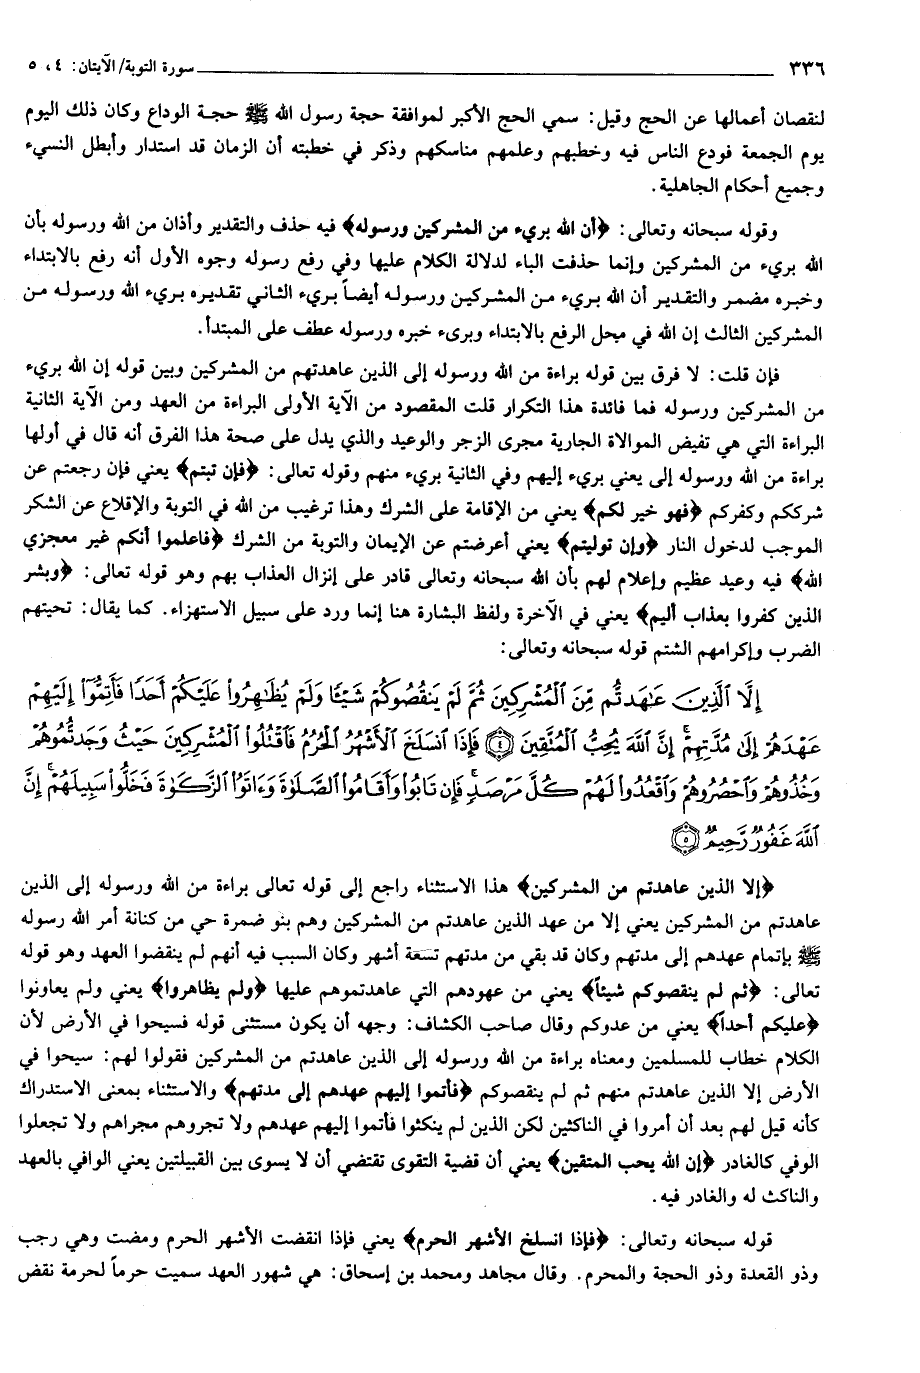 ٣٣٦ سورة التوبة/ الآيتان: ٤، ٥
لنقصان أعمالها عن الحج وقيل: سمي الحج الأكبر لموافقة حجة رسول الله ﷺ حجة الوداع وكان ذلك اليوم
يوم الجمعة فودع الناس فيه وخطبهم وعلمهم مناسكهم وذكر في خطبته أن الزمان قد استدار وأبطل النسيء
وجميع أحكام الجاهلية.
وقوله سبحانه وتعالى: ﴿أن الله بريء من المشركين ورسوله﴾ فيه حذف والتقدير وأذان من الله ورسوله بأن
الله بريء من المشركين وإنما حذفت الباء لدلالة الكلام عليها وفي رفع رسوله وجوه الأول أنه رفع بالابتداء
وخبره مضمر والتقدير أن الله بريء من المشركين ورسوله أيضاً بريء الثاني تقديره بريء الله ورسوله من
المشركين الثالث إن الله في محل الرفع بالابتداء وبرىء خبره ورسوله عطف على المبتدأ.
فإن قلت: لا فرق بين قوله براءة من الله ورسوله إلى الذين عاهدتهم من المشركين وبين قوله إن الله بريء
من المشركين ورسوله فما فائدة هذا التكرار قلت المقصود من الآية الأولى البراءة من العهد ومن الآية الثانية
البراءة التي هي تفيض الموالاة الجارية مجرى الزجر والوعيد والذي يدل على صحة هذا الفرق أنه قال في أولها
براءة من الله ورسوله إلى يعني بريء إليهم وفي الثانية بريء منهم وقوله تعالى: ﴿فإن تبتم﴾ يعني فإن رجعتم عن
شرككم وكفركم ﴿فهو خير لكم﴾ يعني من الإقامة على الشرك وهذا ترغيب من الله في التوبة والإقلاع عن الشكر
الموجب لدخول النار ﴿وإن توليتم﴾ يعني أعرضتم عن الإيمان والتوبة من الشرك ﴿فاعلموا أنكم غير معجزي
الله﴾ فيه وعيد عظيم وإعلام لهم بأن الله سبحانه وتعالى قادر على إنزال العذاب بهم وهو قوله تعالى: ﴿وبشر
الذين كفروا بعذاب أليم﴾ يعني في الآخرة ولفظ البشارة هنا إنما ورد على سبيل الاستهزاء. كما يقال: تحيتهم
الضرب وإكرامهم الشتم قوله سبحانه وتعالى:
إِلَّا ٱلَّذِينَ عَٰهَدتُّم مِّنَ ٱلْمُشْرِكِينَ ثُمَّ لَمْ يَنقُصُوكُمْ شَيْـًٔا وَلَمْ يُظَٰهِرُوا۟ عَلَيْكُمْ أَحَدًا فَأَتِمُّوٓا۟ إِلَيْهِمْ
عَهْدَهُمْ إِلَىٰ مُدَّتِهِمْ ۚ إِنَّ ٱللَّهَ يُحِبُّ ٱلْمُتَّقِينَ ﴿٤﴾ فَإِذَا ٱنسَلَخَ ٱلْأَشْهُرُ ٱلْحُرُمُ فَٱقْتُلُوا۟ ٱلْمُشْرِكِينَ حَيْثُ وَجَدتُّمُوهُمْ
وَخُذُوهُمْ وَٱحْصُرُوهُمْ وَٱقْعُدُوا۟ لَهُمْ كُلَّ مَرْصَدٍ ۚ فَإِن تَابُوا۟ وَأَقَامُوا۟ ٱلصَّلَوٰةَ وَءَاتَوُا۟ ٱلزَّكَوٰةَ فَخَلُّوا۟ سَبِيلَهُمْ ۚ إِنَّ
ٱللَّهَ غَفُورٌ رَّحِيمٌ ﴿٥﴾
﴿إلا الذين عاهدتم من المشركين﴾ هذا الاستثناء راجع إلى قوله تعالى براءة من الله ورسوله إلى الذين
عاهدتم من المشركين يعني إلا من عهد الذين عاهدتم من المشركين وهم بنو ضمرة حي من كنانة أمر الله رسوله
ﷺ بإتمام عهدهم إلى مدتهم وكان قد بقي من مدتهم تسعة أشهر وكان السبب فيه أنهم لم ينقضوا العهد وهو قوله
تعالى: ﴿ثم لم ينقصوكم شيئاً﴾ يعني من عهودهم التي عاهدتموهم عليها ﴿ولم يظاهروا﴾ يعني ولم يعاونوا
﴿عليكم أحداً﴾ يعني من عدوكم وقال صاحب الكشاف: وجهه أن يكون مستثنى قوله فسيحوا في الأرض لأن
الكلام خطاب للمسلمين ومعناه براءة من الله ورسوله إلى الذين عاهدتم من المشركين فقولوا لهم: سيحوا في
الأرض إلا الذين عاهدتم منهم ثم لم ينقصوكم ﴿فأتموا إليهم عهدهم إلى مدتهم﴾ والاستثناء بمعنى الاستدراك
كأنه قيل لهم بعد أن أمروا في الناكثين لكن الذين لم ينكثوا فأتموا إليهم عهدهم ولا تجروهم مجراهم ولا تجعلوا
الوفي كالغادر ﴿إن الله يحب المتقين﴾ يعني أن قضية التقوى تقتضي أن لا يسوى بين القبيلتين يعني الوافي بالعهد
والناكث له والغادر فيه.
قوله سبحانه وتعالى: ﴿فإذا انسلخ الأشهر الحرم﴾ يعني فإذا انقضت الأشهر الحرم ومضت وهي رجب
وذو القعدة وذو الحجة والمحرم. وقال مجاهد ومحمد بن إسحاق: هي شهور العهد سميت حرماً لحرمة نقض